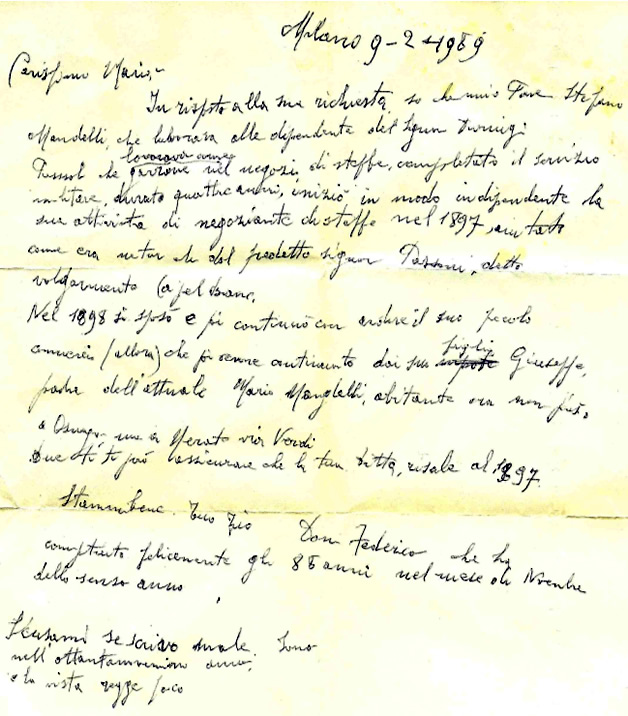 Milano 9-2-1989
Carissimo Mario,
In risposto alla sua richiesta, so che mio Stefano
Mandelli, che laborava alle dipendente del Signor
lavorava come
che garzone nel negozi di stoffe, completato il servizio
militare, durato quattro anni, iniziò in modo indipendente la
sua attivita di negoziante di stoffe nel 1897, aiutato
come era dal predetto signor Passoni, detto
volgarmente
Nel 1898 si sposò e poi continuò con ardire il suo piccolo
figli
commercio (allora) che poi venne continuato dai suoi Giuseppe,
padre dell'attuale Mario Mandelli, abitante ora non più
a Osnago ma a Merate via Verdi
ti può assicurare che la tua Ditta, risale al 1897.
Stammi bene. Tuo Zio Don Federico che ha
compiuto felicemente gli 85 anni nel mese di Novembre
dello scorso anno
Scusami se scrivo male. Sono
nell'ottantanovesimo anno,
e la vista regge poco